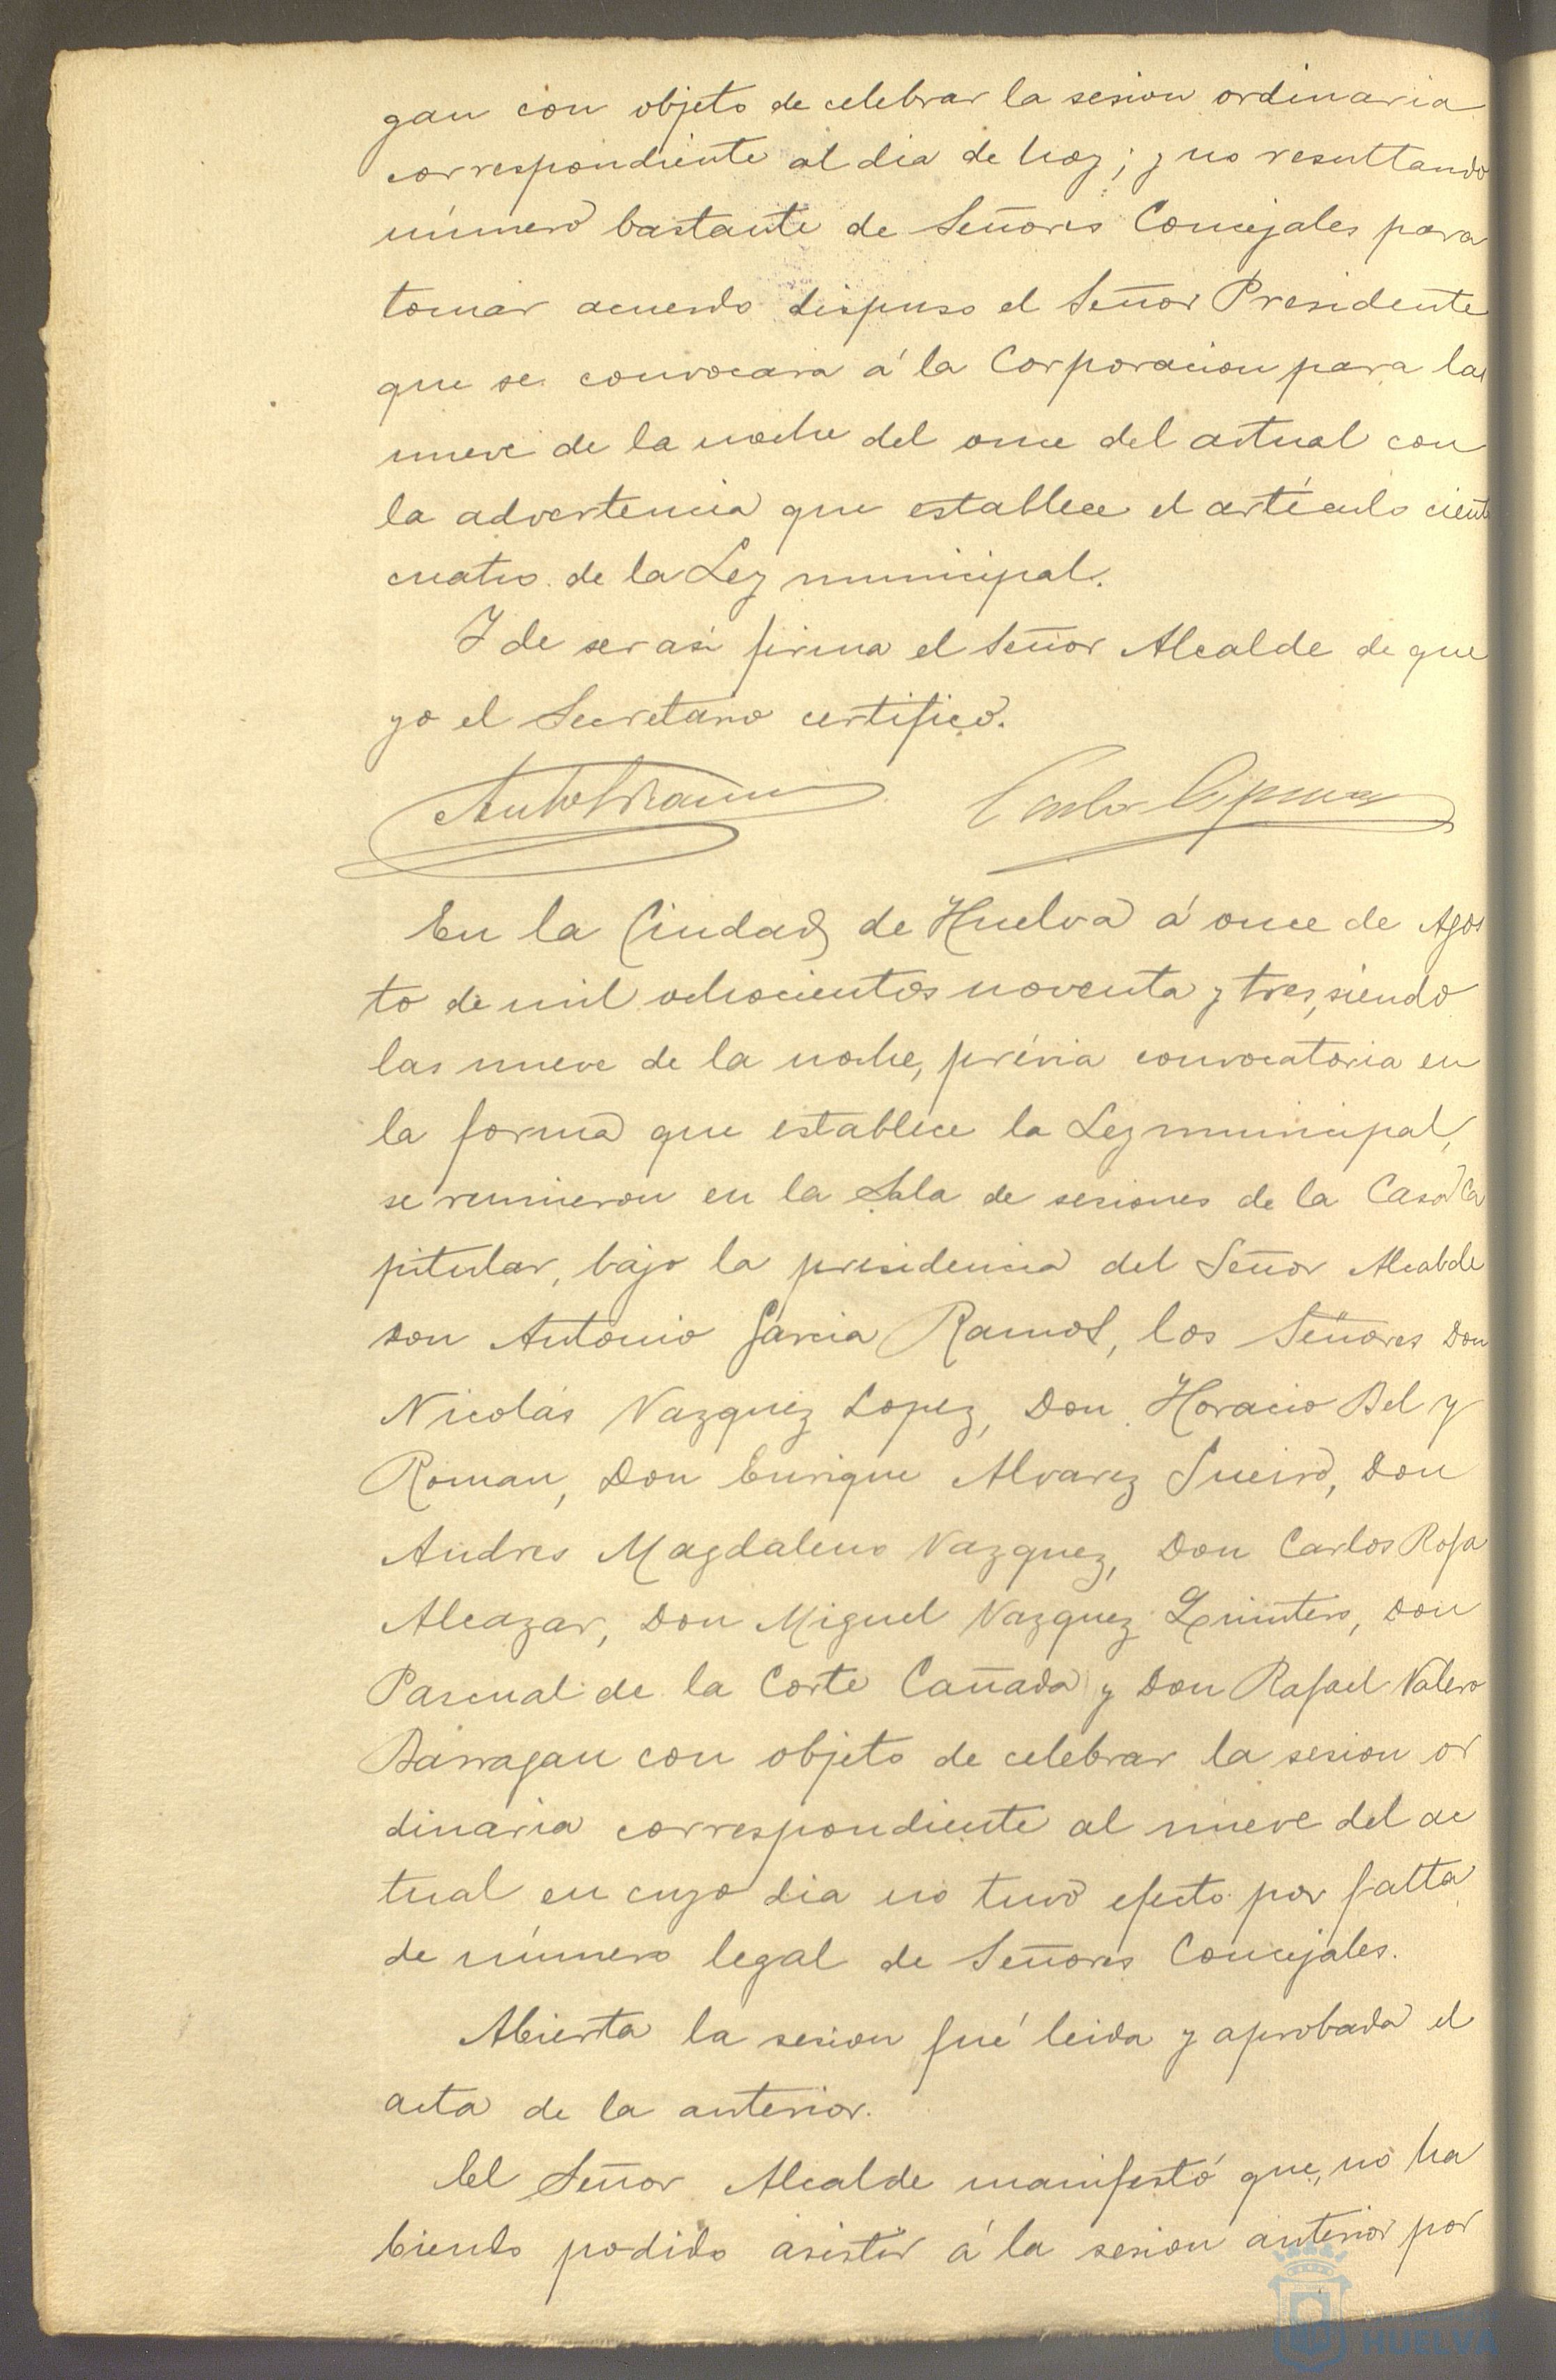 gan con objeto de celebrar la sesion ordinaria
correspondiente al dia de hoy; y no resultando
número bastante de Señores Concejales para
tomar acuerdo dispuso el Señor Presidente
que se convocara á la Corporacion para las
nueve de la noche del once del actual con
la advertencia que establece el artículo ciento
cuatro de la Ley municipal.
Y de ser asi firma el Señor Alcalde de que
yo el Secretario certifico.
En la Ciudad de Huelva á once de Agos
to de mil ochocientos noventa y tres, siendo
las nueve de la noche, prévia convocatoria en
la forma que establece la Ley municipal,
se reunieron en la Sala de sesiones de la Casa Ca
pitular, bajo la presidencia del Señor Alcalde
Don Antonio Garcia Ramos, los Señores Don
Nicolás Vazquez Lopez, Don Horacio Bel y
Roman, Don Enrique Alvarez Sueiro, Don
Andres Magdaleno Vazquez, Don Carlos Rofa
Alcazar, Don Miguel Vazquez Quintero, Don
Pascual de la Corte Cañada y Don Rafael Valero
Barragan con objeto de celebrar la sesion or
dinaria correspondiente al nueve del ac
tual en cuyo dia no tuvo efecto por falta
de número legal de Señores Concejales.
Abierta la sesion fué leida y aprobada el
acta de la anterior.
El Señor Alcalde manifestó que, no ha
biendo podido asistir á la sesion anterior por
HUELVA